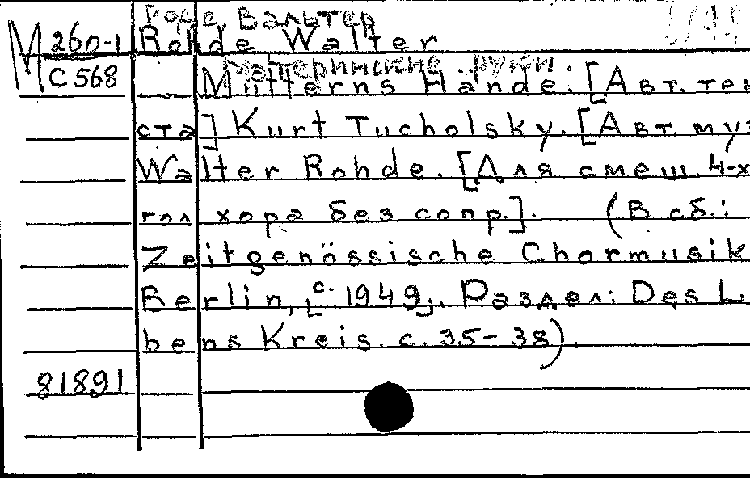 Роде, Вальтер
М 260-1 Rohde Walter
С 568
Материнские руки
Mutterns Hände. [Авт. тек
ста] Kurt Tucholsky. [Авт. муз
Walter Rohde. [Для смеш. 4-х
гол. хора без сопр.]. (В сб.:
Zeitgenössische Chormusik
Berlin, [с. 1949]. Раздел: Des L
bens Kreis. с. 35-38).
81891